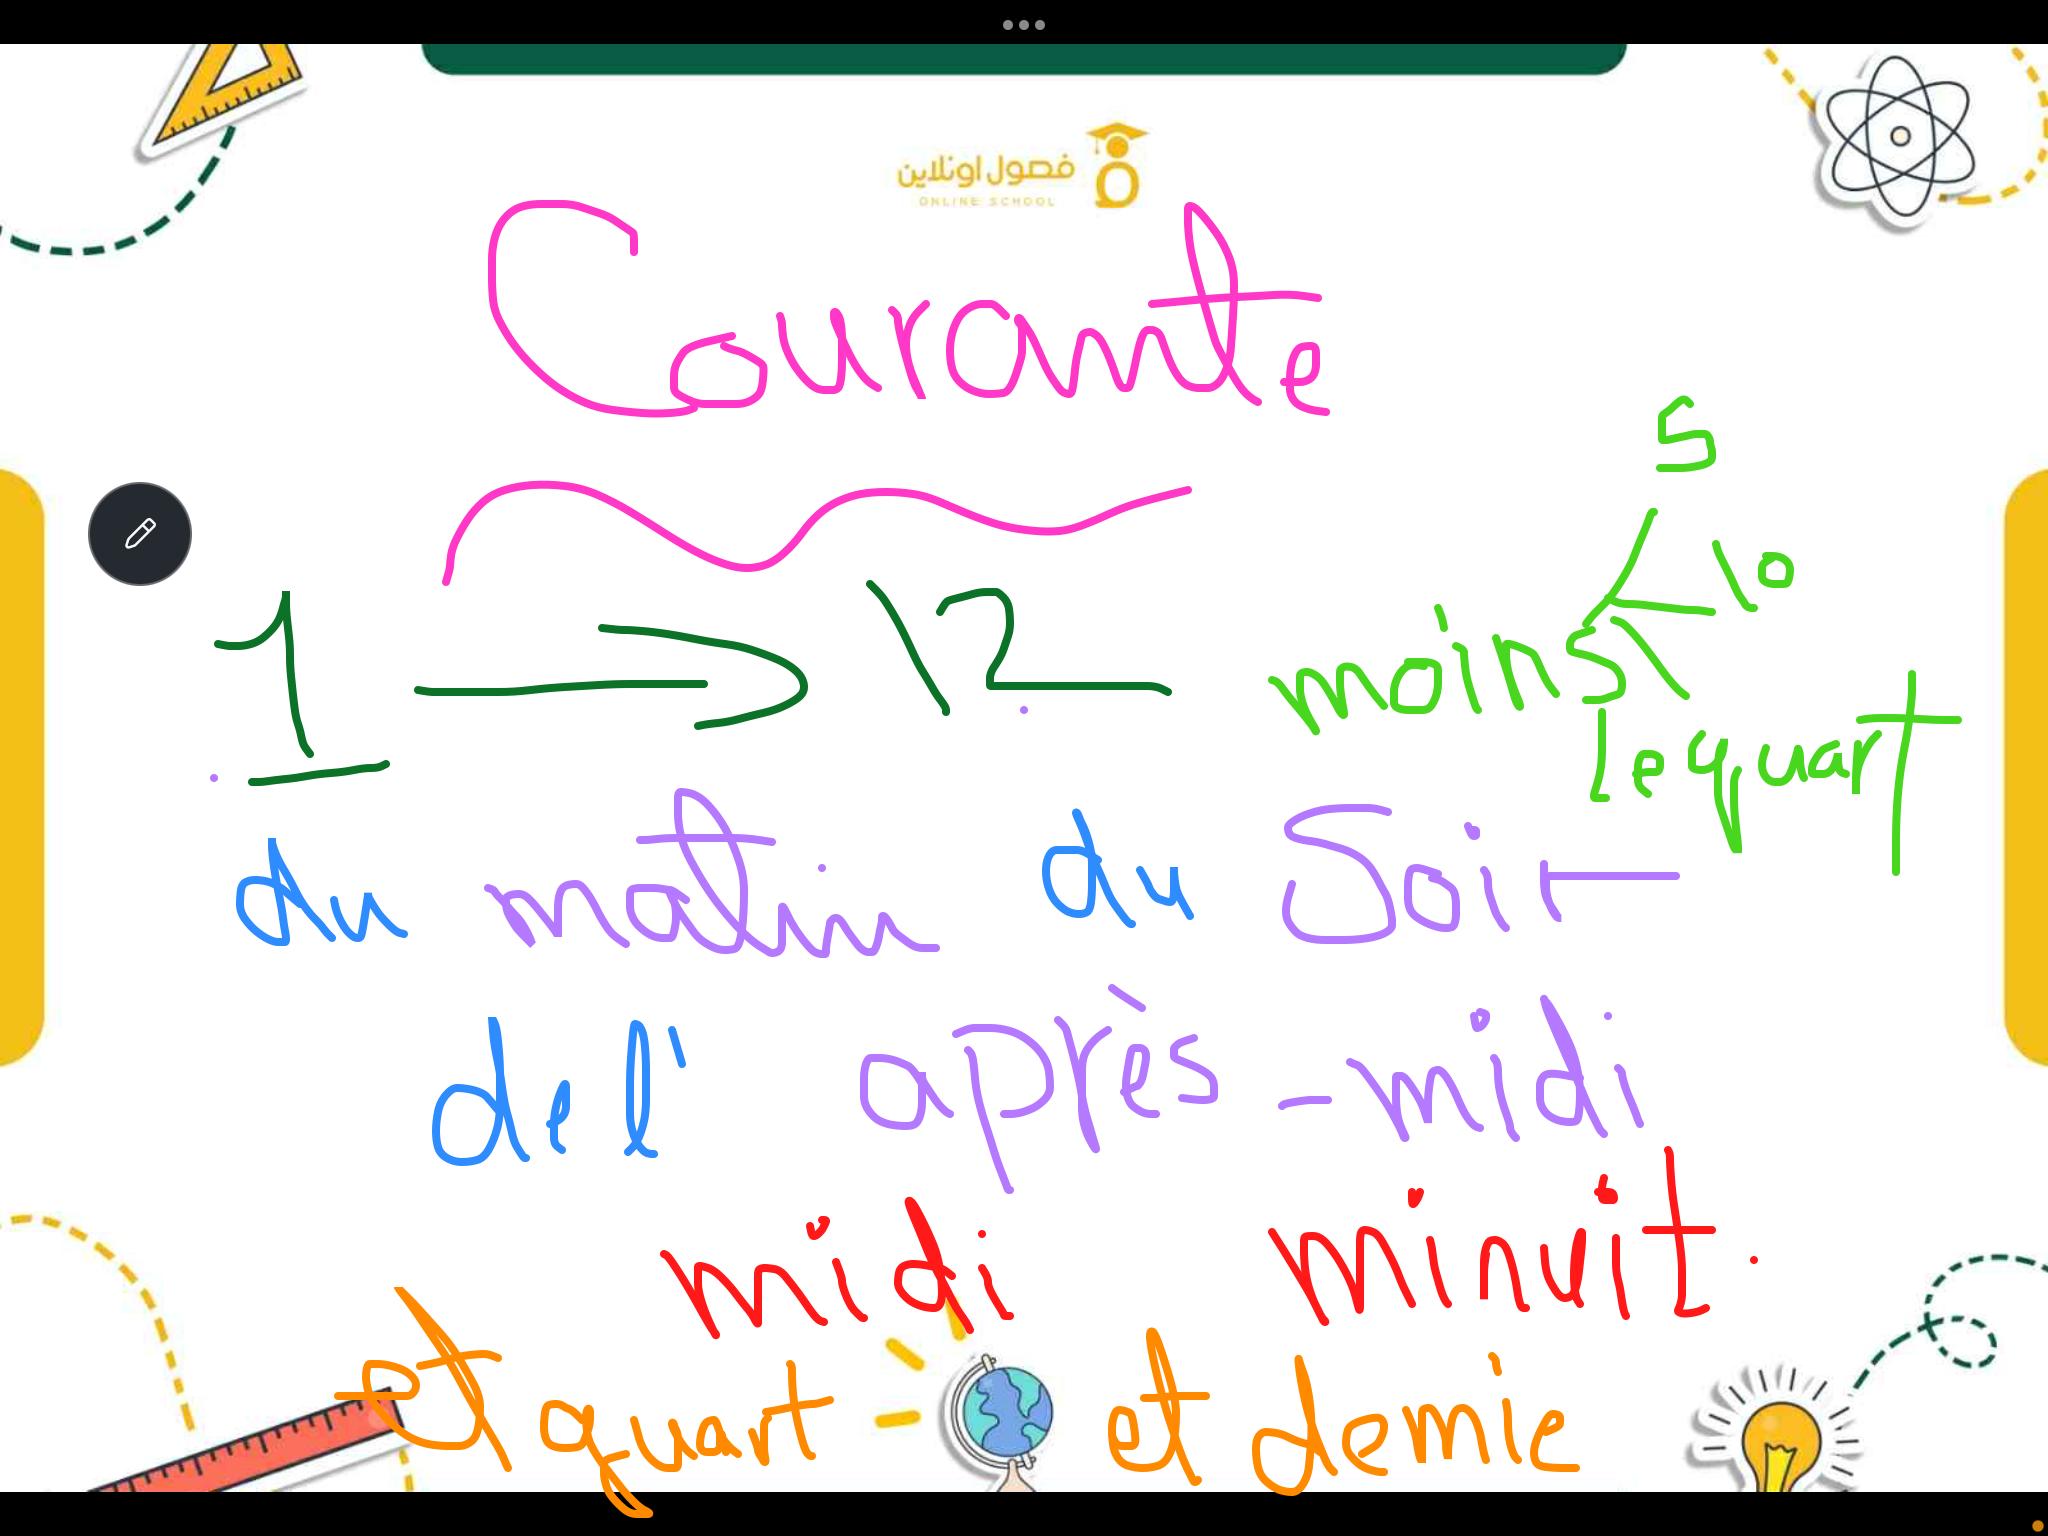 فصول اونلاين
ONLINE SCHOOL
Courante
5
1 → 12 moins 10
le quart
du matin du Soir
de l' après-midi
midi minuit.
et quart et demie